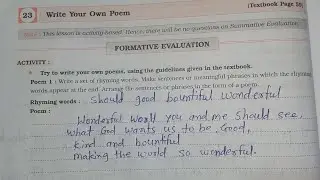 23 Write Your Own Poem
(Textbook Page
This lesson is activity based. Hence there will be no questions on Summative Evaluation.
FORMATIVE EVALUATION
ACTIVITY :
Try to write your own poems, using the guidelines given in the textbook.
Poem 1 : Write a set of rhyming words. Make sentences or meaningful phrases in which the rhyming
words appear at the end. Arrange the sentences or phrases in the form of a poem.
Rhyming words : should good bountiful wonderful
Poem :
Wonderful World you and me should see,
what God wants us to be, Good,
Kind and bountiful
making the world so wonderful.